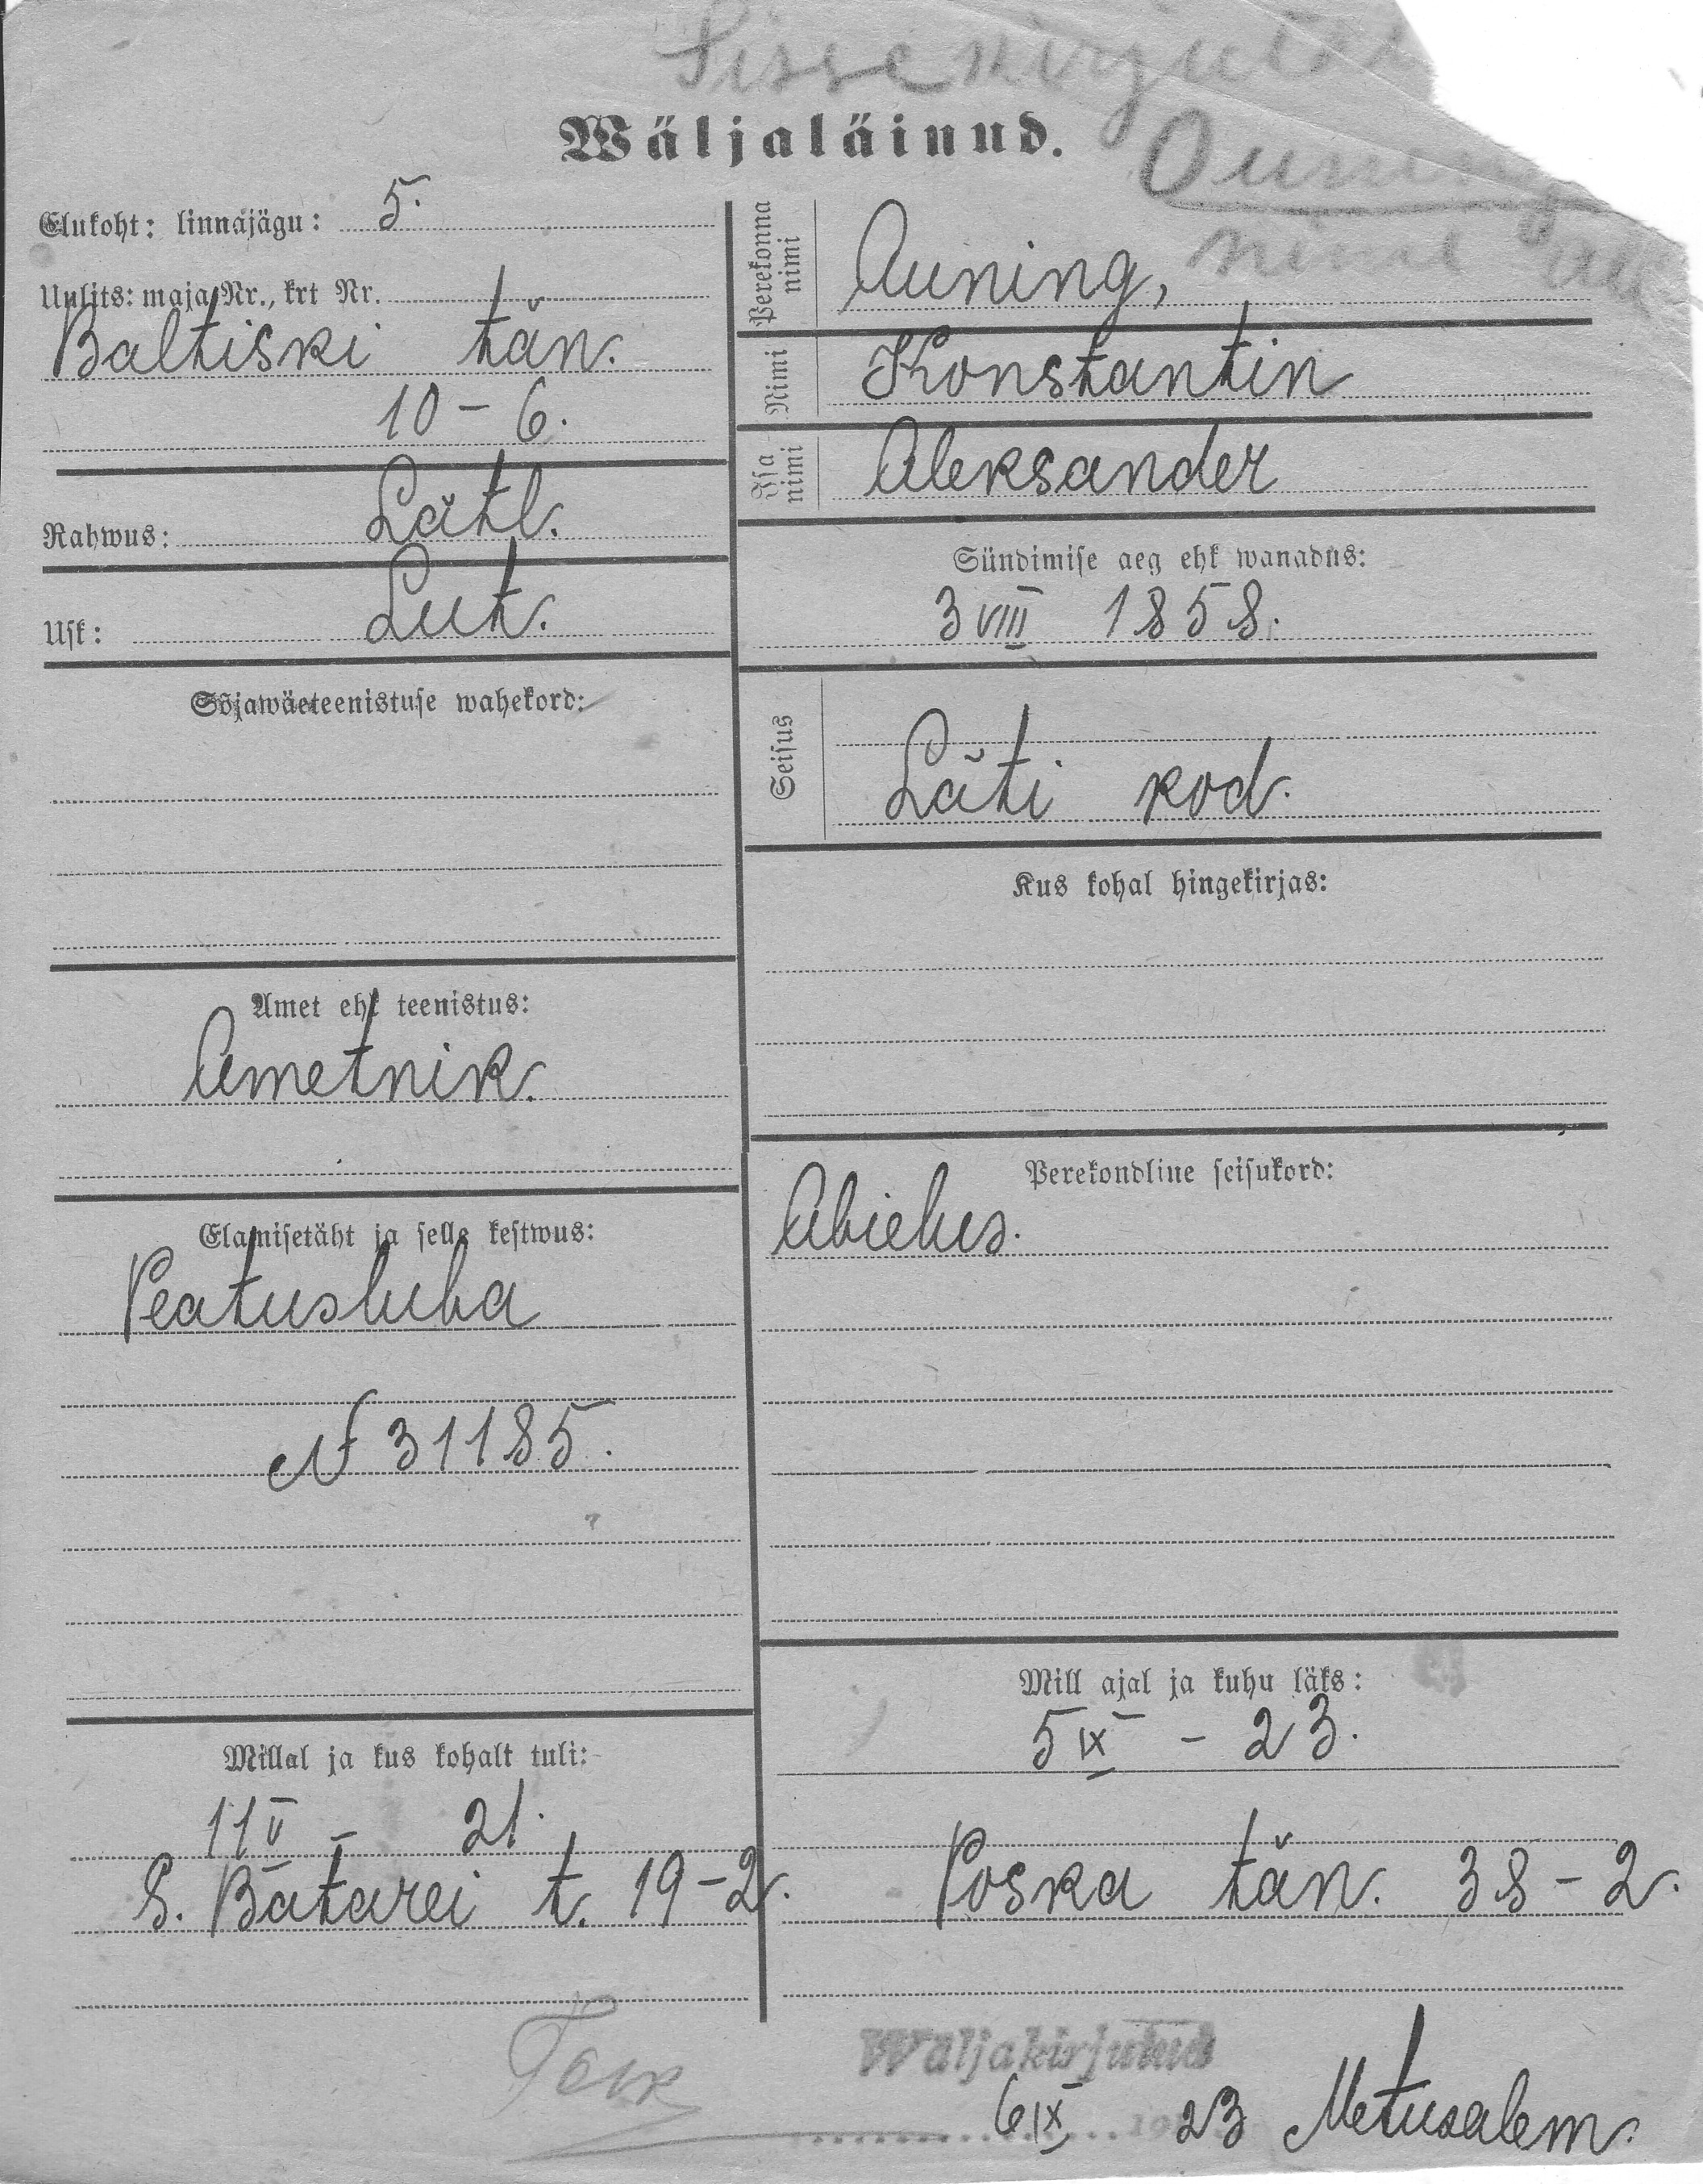 Sissekirjutat
Ouning
nime all
Wäljaläinud.
Elukoht: linnajägu: 5.
Uulits: maja Nr., krt Nr.
Baltiski tän.
10 - 6.
Rahwus: Lätl.
Usk: Lut.
Sõjawäeteenistuse wahekord:
Amet ehk teenistus:
Ametnik.
Elamisetäht ja selle kestwus:
Peatusluba
N 31185.
Millal ja kus kohalt tuli:
11 V - 21.
S. Batarei t. 19-2.
Perekonna nimi
Auning,
Nimi
Konstantin
Isa nimi
Aleksander
Sündimise aeg ehk wanadus:
3 VIII 1858.
Seisus
Läti kod.
Kus kohal hingekirjas:
Perekondline seisukord:
Abielus.
Mill ajal ja kuhu läks:
5 IX - 23.
Poska tän. 38-2.
Wäljakirjutud
6 IX 23 Metusalem.